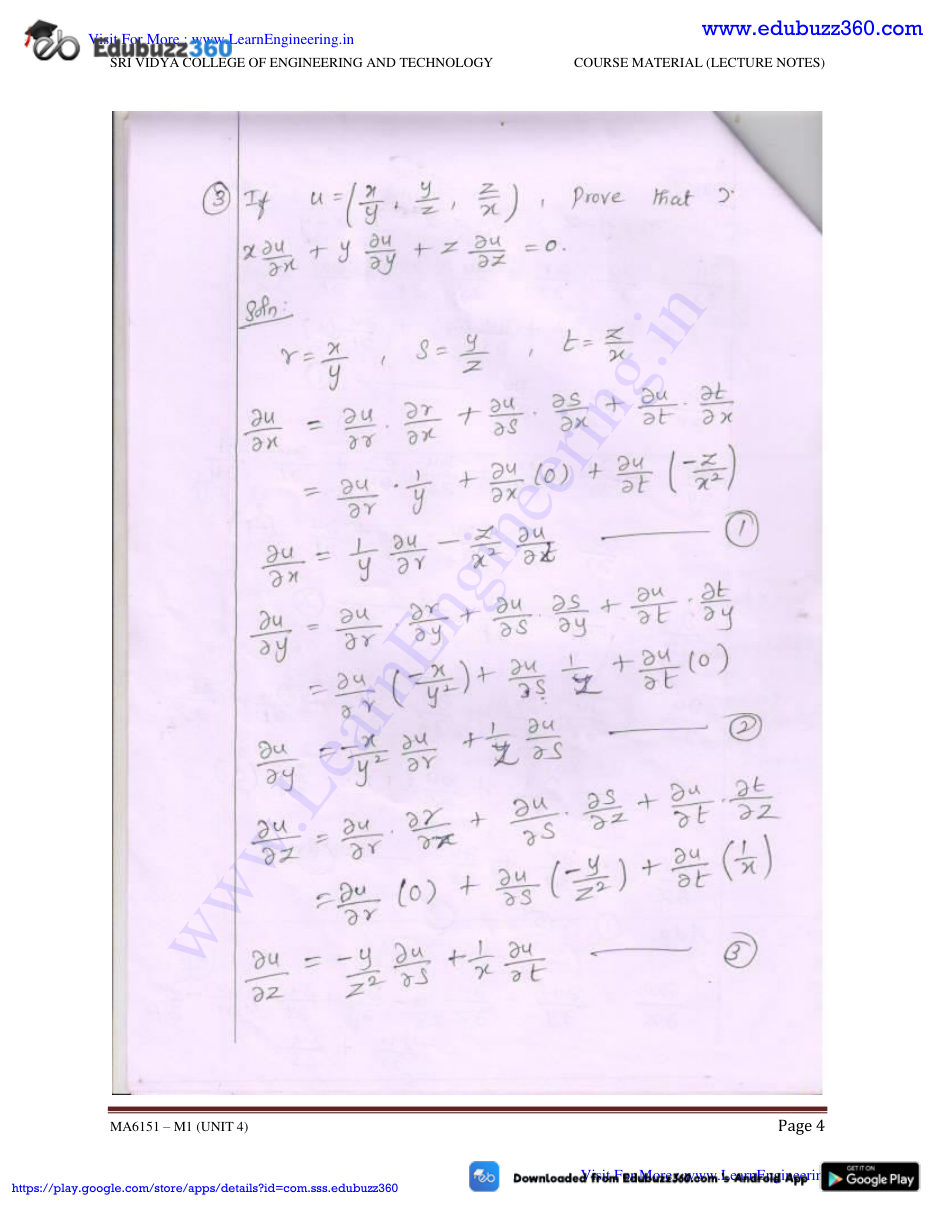 www.edubuzz360.com
Visit For More : www.LearnEngineering.in
Edubuzz360
SRI VIDYA COLLEGE OF ENGINEERING AND TECHNOLOGY COURSE MATERIAL (LECTURE NOTES)
③ If u = (x/y, y/z, z/x), Prove that
x ∂u/∂x + y ∂u/∂y + z ∂u/∂z = 0.
Soln:
r = x/y , s = y/z , t = z/x
∂u/∂x = ∂u/∂r . ∂r/∂x + ∂u/∂s . ∂s/∂x + ∂u/∂t . ∂t/∂x
= ∂u/∂r . 1/y + ∂u/∂x (0) + ∂u/∂t (-z/x²)
∂u/∂x = 1/y ∂u/∂r - z/x² ∂u/∂t —— ①
∂u/∂y = ∂u/∂r . ∂r/∂y + ∂u/∂s . ∂s/∂y + ∂u/∂t . ∂t/∂y
= ∂u/∂r (-x/y²) + ∂u/∂s 1/z + ∂u/∂t (0)
∂u/∂y = -x/y² ∂u/∂r + 1/z ∂u/∂s —— ②
∂u/∂z = ∂u/∂r . ∂r/∂z + ∂u/∂s . ∂s/∂z + ∂u/∂t . ∂t/∂z
= ∂u/∂r (0) + ∂u/∂s (-y/z²) + ∂u/∂t (1/x)
∂u/∂z = -y/z² ∂u/∂s + 1/x ∂u/∂t —— ③
www.LearnEngineering.in
MA6151 – M1 (UNIT 4) Page 4
Visit For More : www.LearnEngineerin
https://play.google.com/store/apps/details?id=com.sss.edubuzz360
Downloaded from EduBuzz360.com 's Android App
GET IT ON
Google Play